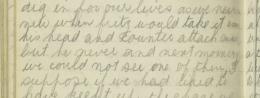 dig in for our lives as we never
new when fritz would take it in
his head and counter attach us
but he never and next morning
we could not see one of them
suppose if we had tried to
have keept up the